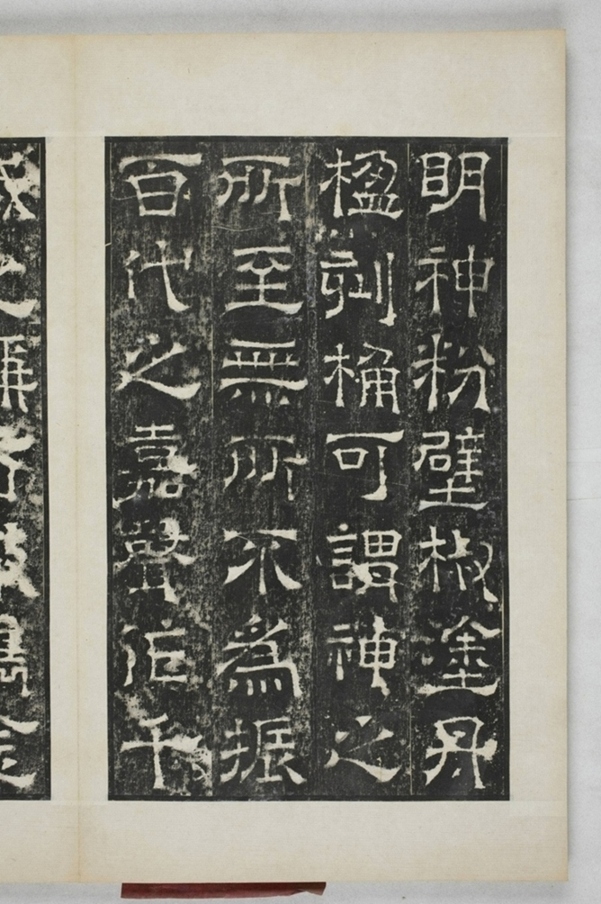 明神粉壁椒塗丹
楹刻桷可謂神之
所至無所不爲振
百代之嘉聲作千